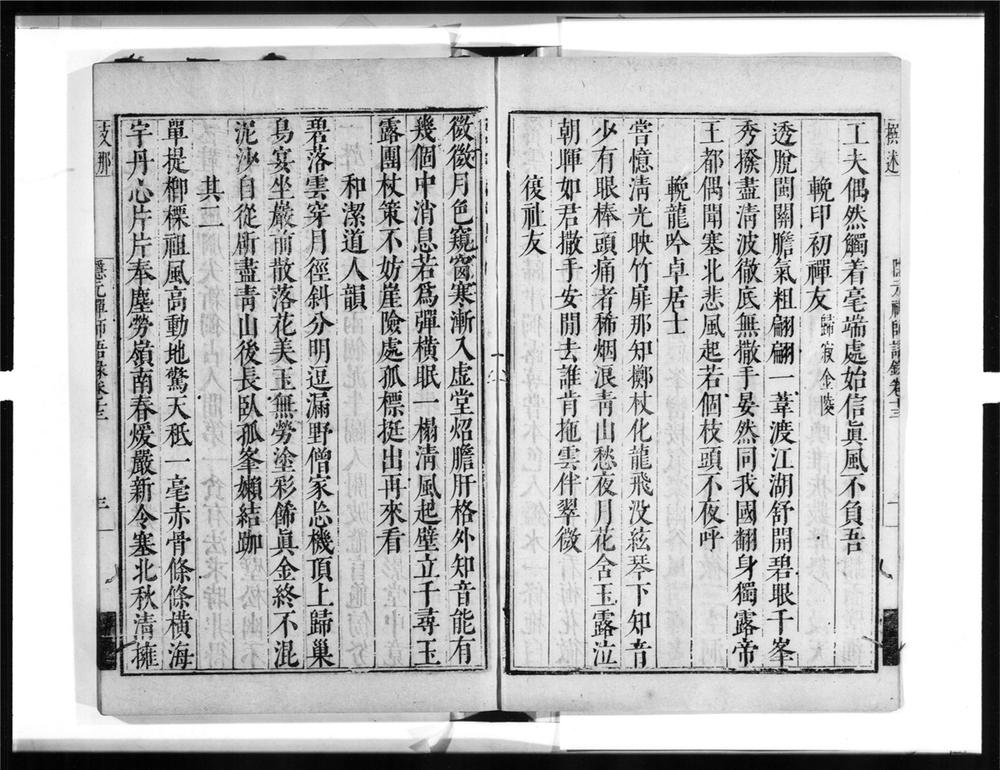 工夫偶然觸着毫端處始信眞風不負吾
輓印初禪友歸寂金陵
透脫閩關膽氣粗翩翩一葦渡江湖舒開碧眼千峯
秀撥盡清波徹底無撒手晏然同我國翻身獨露帝
王都偶聞塞北悲風起若個枝頭不夜呼
輓龍吟卓居士
嘗憶清光映竹扉那知擲杖化龍飛没絃琴下知音
少有眼棒頭痛者稀烟浪靑山愁夜月花含玉露泣
朝暉如君撒手安閒去誰肯拖雲伴翠微
復社友
微微月色窺窗寒漸入虛堂炤膽肝格外知音能有
幾個中消息若爲彈橫眠一榻淸風起壁立千尋玉
露團杖策不妨崖險處孤標挺出再來看
和潔道人韻
碧落雲穿月徑斜分明逗漏野僧家忘機頂上歸巢
鳥宴坐巖前散落花美玉無勞塗彩餙眞金終不混
泥沙自從斫盡靑山後長臥孤峯嬾結跏
其二
單提楖𣗖祖風高動地驚天秪一毫赤骨條條橫海
宇丹心片片奉塵勞嶺南春煖嚴新令塞北秋淸擁
支那
隱元禪師語錄卷十三
三